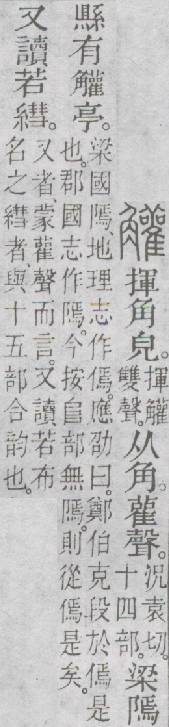 䚭 揮角皃。揮䚭雙聲。从角。雚聲。況袁切。十四部。梁隖
縣有䚭亭。梁國隖。地理志作傿。應劭曰。鄭伯克段於傿是也。郡國志作隖。今按𨸏部無隖。則從傿是矣。
又讀若。又者蒙雚聲而言。又讀若布名之者。與十五部合韵也。